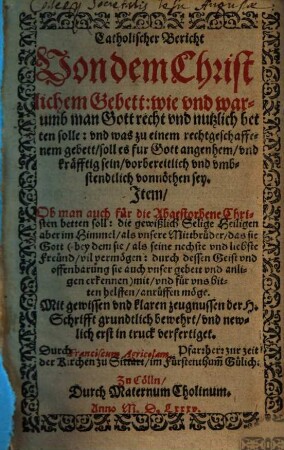 Colleg. Societatis Iesu Augustae
Catholischer Bericht
Von dem Christ
lichem Gebett: wie vnd war-
umb man Gott recht vnd nutzlich bet
ten solle: vnd was zu einem rechtgeschaffe-
nem gebett/ soll es fur Gott angenhem/ vnd
kräfftig sein/ vorbereitlich vnd vmb-
stendtlich vonnöthen sey.
Item/
Ob man auch für die Abgestorbene Chri-
sten betten soll: die gewißlich Selige Heiligen
aber im Himmel/ als vnsere Mitbrüder/ das sie
Gott (bey dem sie/ als seine nechste vnd liebste
Freünd/ vil vermögen: durch dessen Geist vnd
offenbarung sie auch vnser gebett vnd anli-
gen erkennen) mit/ vnd für vns bit-
ten helffen/ anrüffen möge.
Mit gewissen vnd klaren zeugnussen der H.
Schrifft grundtlich bewehrt/ vnd new-
lich erst in truck verfertiget.
Durch Franciscum Agricolam, Pfarrherr zur zeit
der Kirchen zu Sittart/ im Fürstenthum Gülich.
Zu Cölln/
Durch Maternum Cholinum.
Anno M. D. LXXXV.